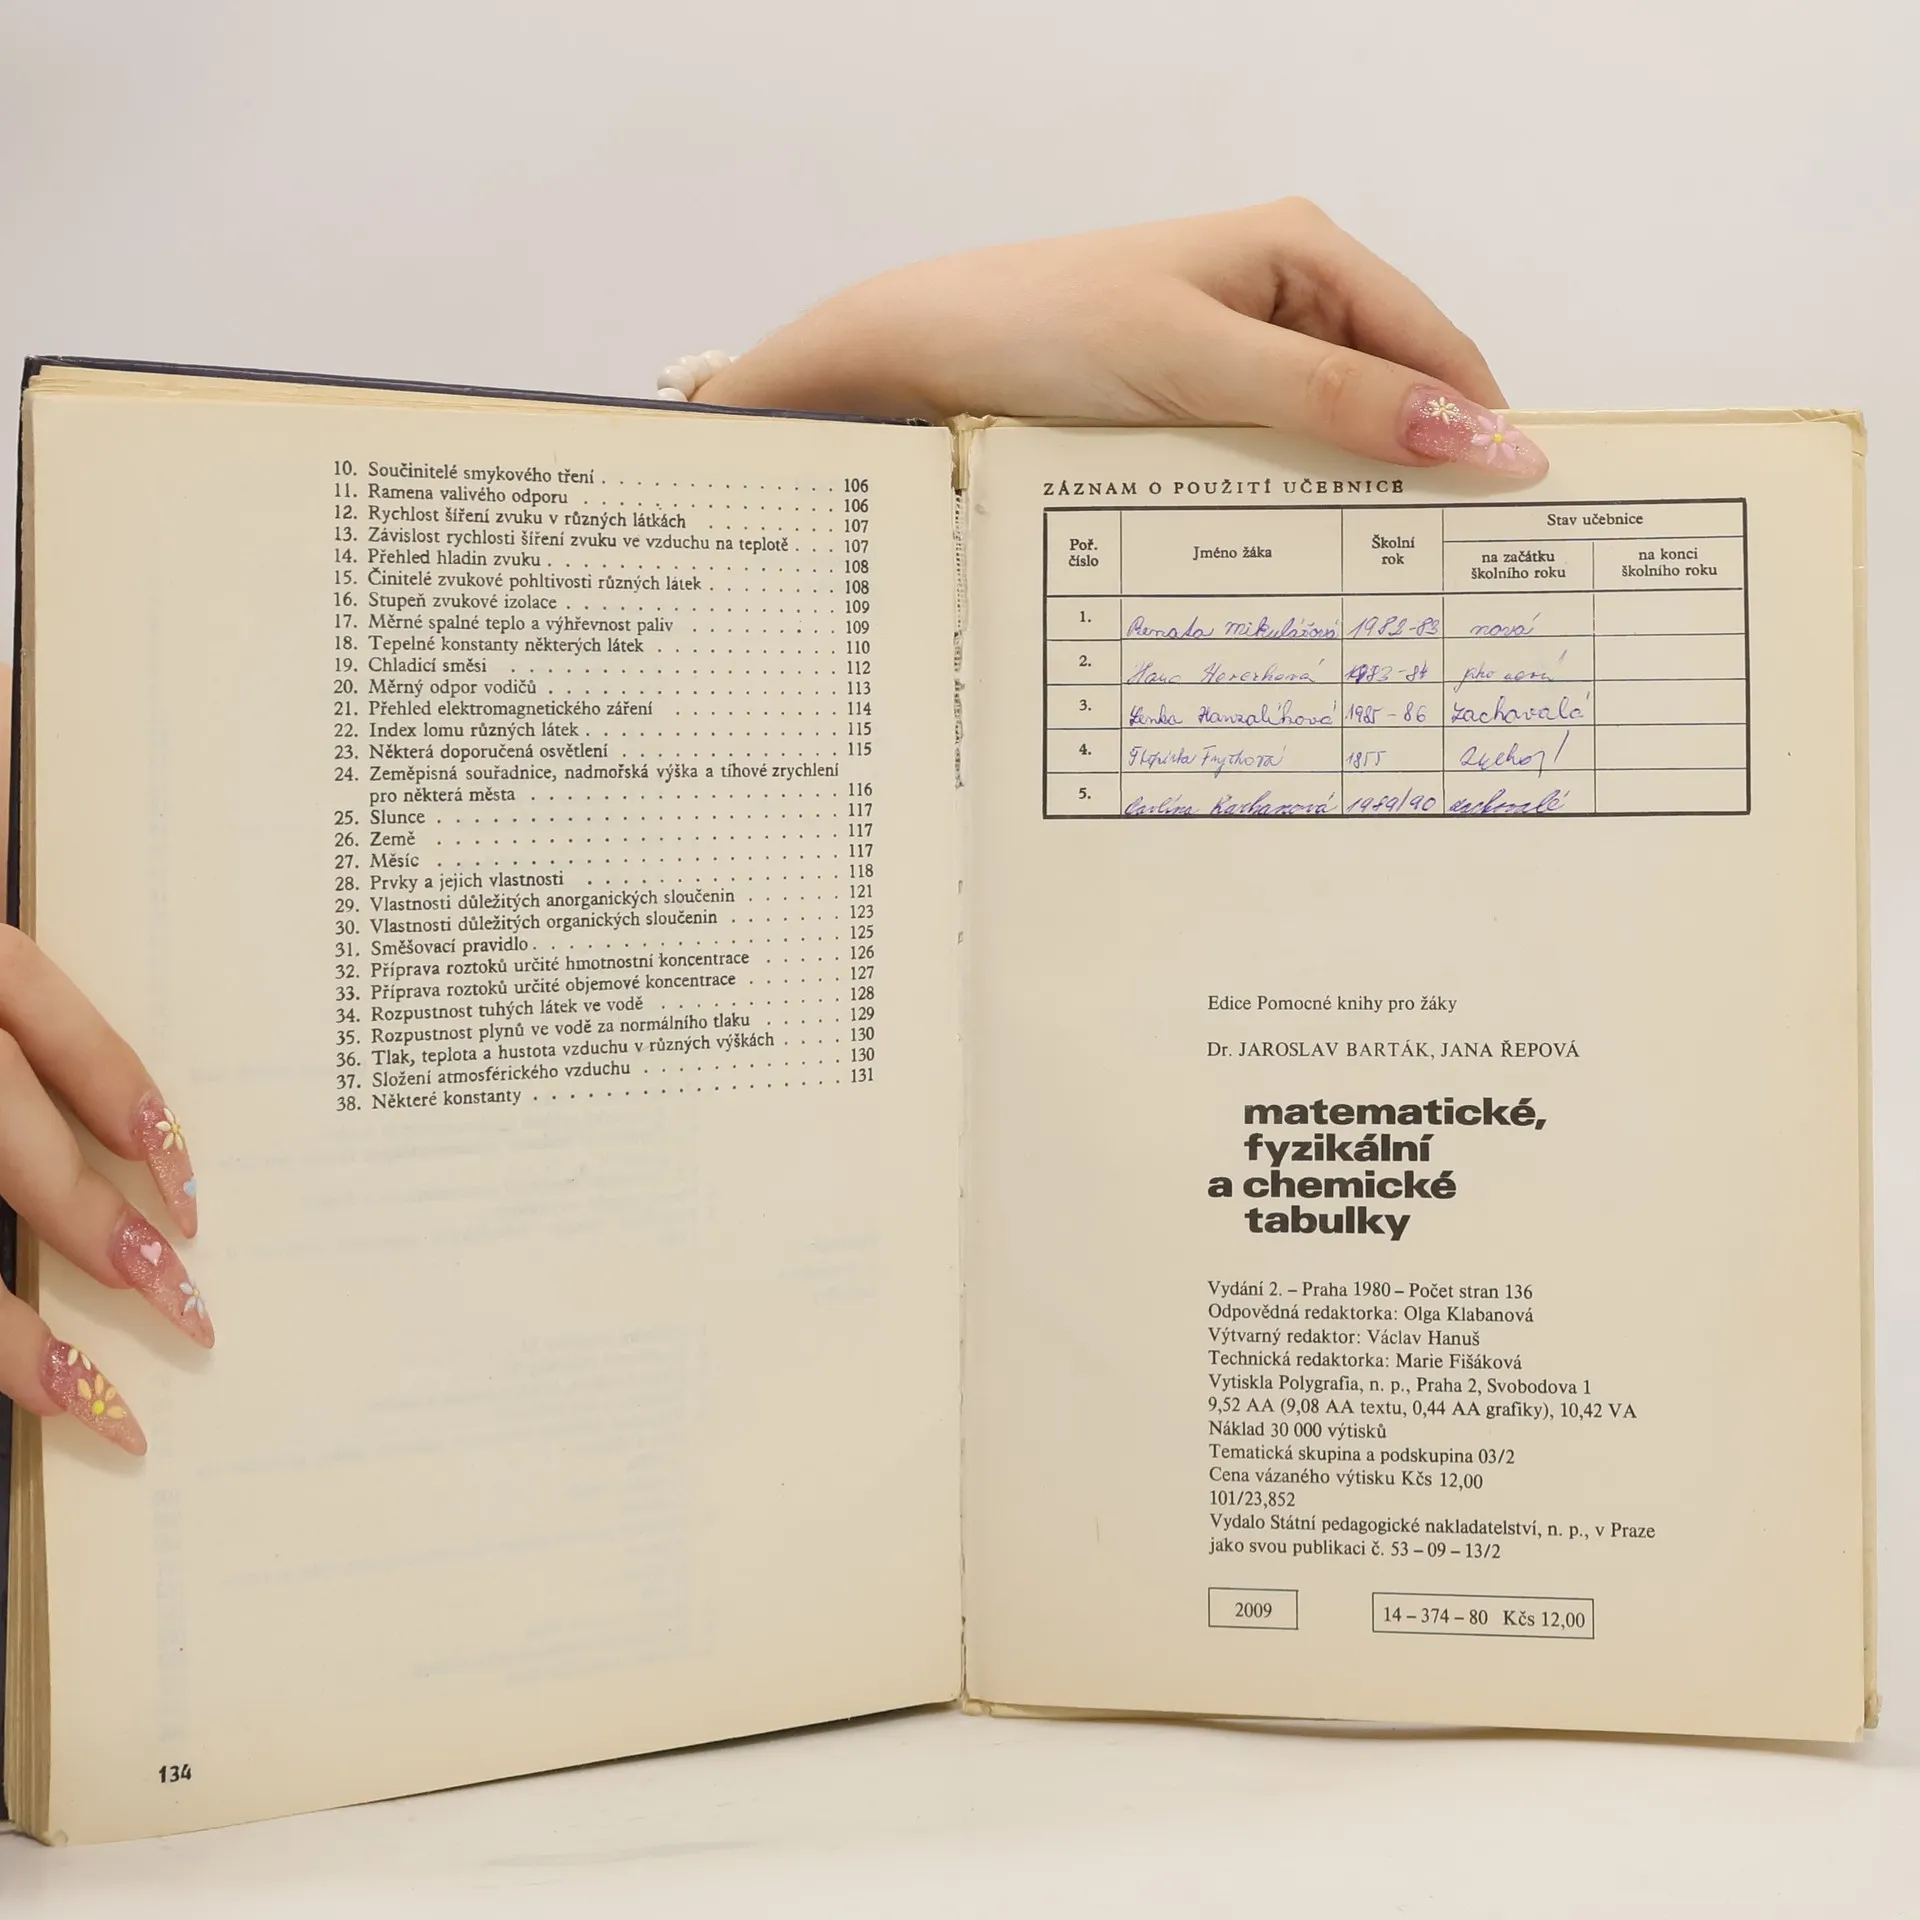 10. Součinitelé smykového tření . . . . . . . . . . . . . . 106
11. Ramena valivého odporu . . . . . . . . . . . . . . . 106
12. Rychlost šíření zvuku v různých látkách . . . . . . . 107
13. Závislost rychlosti šíření zvuku ve vzduchu na teplotě . . . 107
14. Přehled hladin zvuku . . . . . . . . . . . . . . . . 108
15. Činitelé zvukové pohltivosti různých látek . . . . . . . 108
16. Stupeň zvukové izolace . . . . . . . . . . . . . . . 109
17. Měrné spalné teplo a výhřevnost paliv . . . . . . . . 109
18. Tepelné konstanty některých látek . . . . . . . . . . 110
19. Chladicí směsi . . . . . . . . . . . . . . . . . . 112
20. Měrný odpor vodičů . . . . . . . . . . . . . . . . 113
21. Přehled elektromagnetického záření . . . . . . . . . 114
22. Index lomu různých látek . . . . . . . . . . . . . . 115
23. Některá doporučená osvětlení . . . . . . . . . . . . 115
24. Zeměpisná souřadnice, nadmořská výška a tíhové zrychlení
pro některá města . . . . . . . . . . . . . . . . . 116
25. Slunce . . . . . . . . . . . . . . . . . . . . . . 117
26. Země . . . . . . . . . . . . . . . . . . . . . . 117
27. Měsíc . . . . . . . . . . . . . . . . . . . . . . 117
28. Prvky a jejich vlastnosti . . . . . . . . . . . . . . 118
29. Vlastnosti důležitých anorganických sloučenin . . . . . . 121
30. Vlastnosti důležitých organických sloučenin . . . . . . . 123
31. Směšovací pravidlo . . . . . . . . . . . . . . . . . 125
32. Příprava roztoků určité hmotnostní koncentrace . . . . . 126
33. Příprava roztoků určité objemové koncentrace . . . . . . 127
34. Rozpustnost tuhých látek ve vodě . . . . . . . . . . 128
35. Rozpustnost plynů ve vodě za normálního tlaku . . . . . 129
36. Tlak, teplota a hustota vzduchu v různých výškách . . . . 130
37. Složení atmosférického vzduchu . . . . . . . . . . . 130
38. Některé konstanty . . . . . . . . . . . . . . . . . 131
134
ZÁZNAM O POUŽITÍ UČEBNICE
Poř. číslo Jméno žáka Školní rok Stav učebnice
na začátku školního roku na konci školního roku
1. Renata Mikulášová 1982-83 nová
2. Hana 1983-84
3. Lenka Hanzalíková 1985-86 zachovalá
4.
5. Karbanová 1989/90 zachovalé
Edice Pomocné knihy pro žáky
Dr. JAROSLAV BARTÁK, JANA ŘEPOVÁ
matematické,
fyzikální
a chemické
tabulky
Vydání 2. – Praha 1980 – Počet stran 136
Odpovědná redaktorka: Olga Klabanová
Výtvarný redaktor: Václav Hanuš
Technická redaktorka: Marie Fišáková
Vytiskla Polygrafia, n. p., Praha 2, Svobodova 1
9,52 AA (9,08 AA textu, 0,44 AA grafiky), 10,42 VA
Náklad 30 000 výtisků
Tematická skupina a podskupina 03/2
Cena vázaného výtisku Kčs 12,00
101/23,852
Vydalo Státní pedagogické nakladatelství, n. p., v Praze
jako svou publikaci č. 53 – 09 – 13/2
2009 14 – 374 – 80 Kčs 12,00